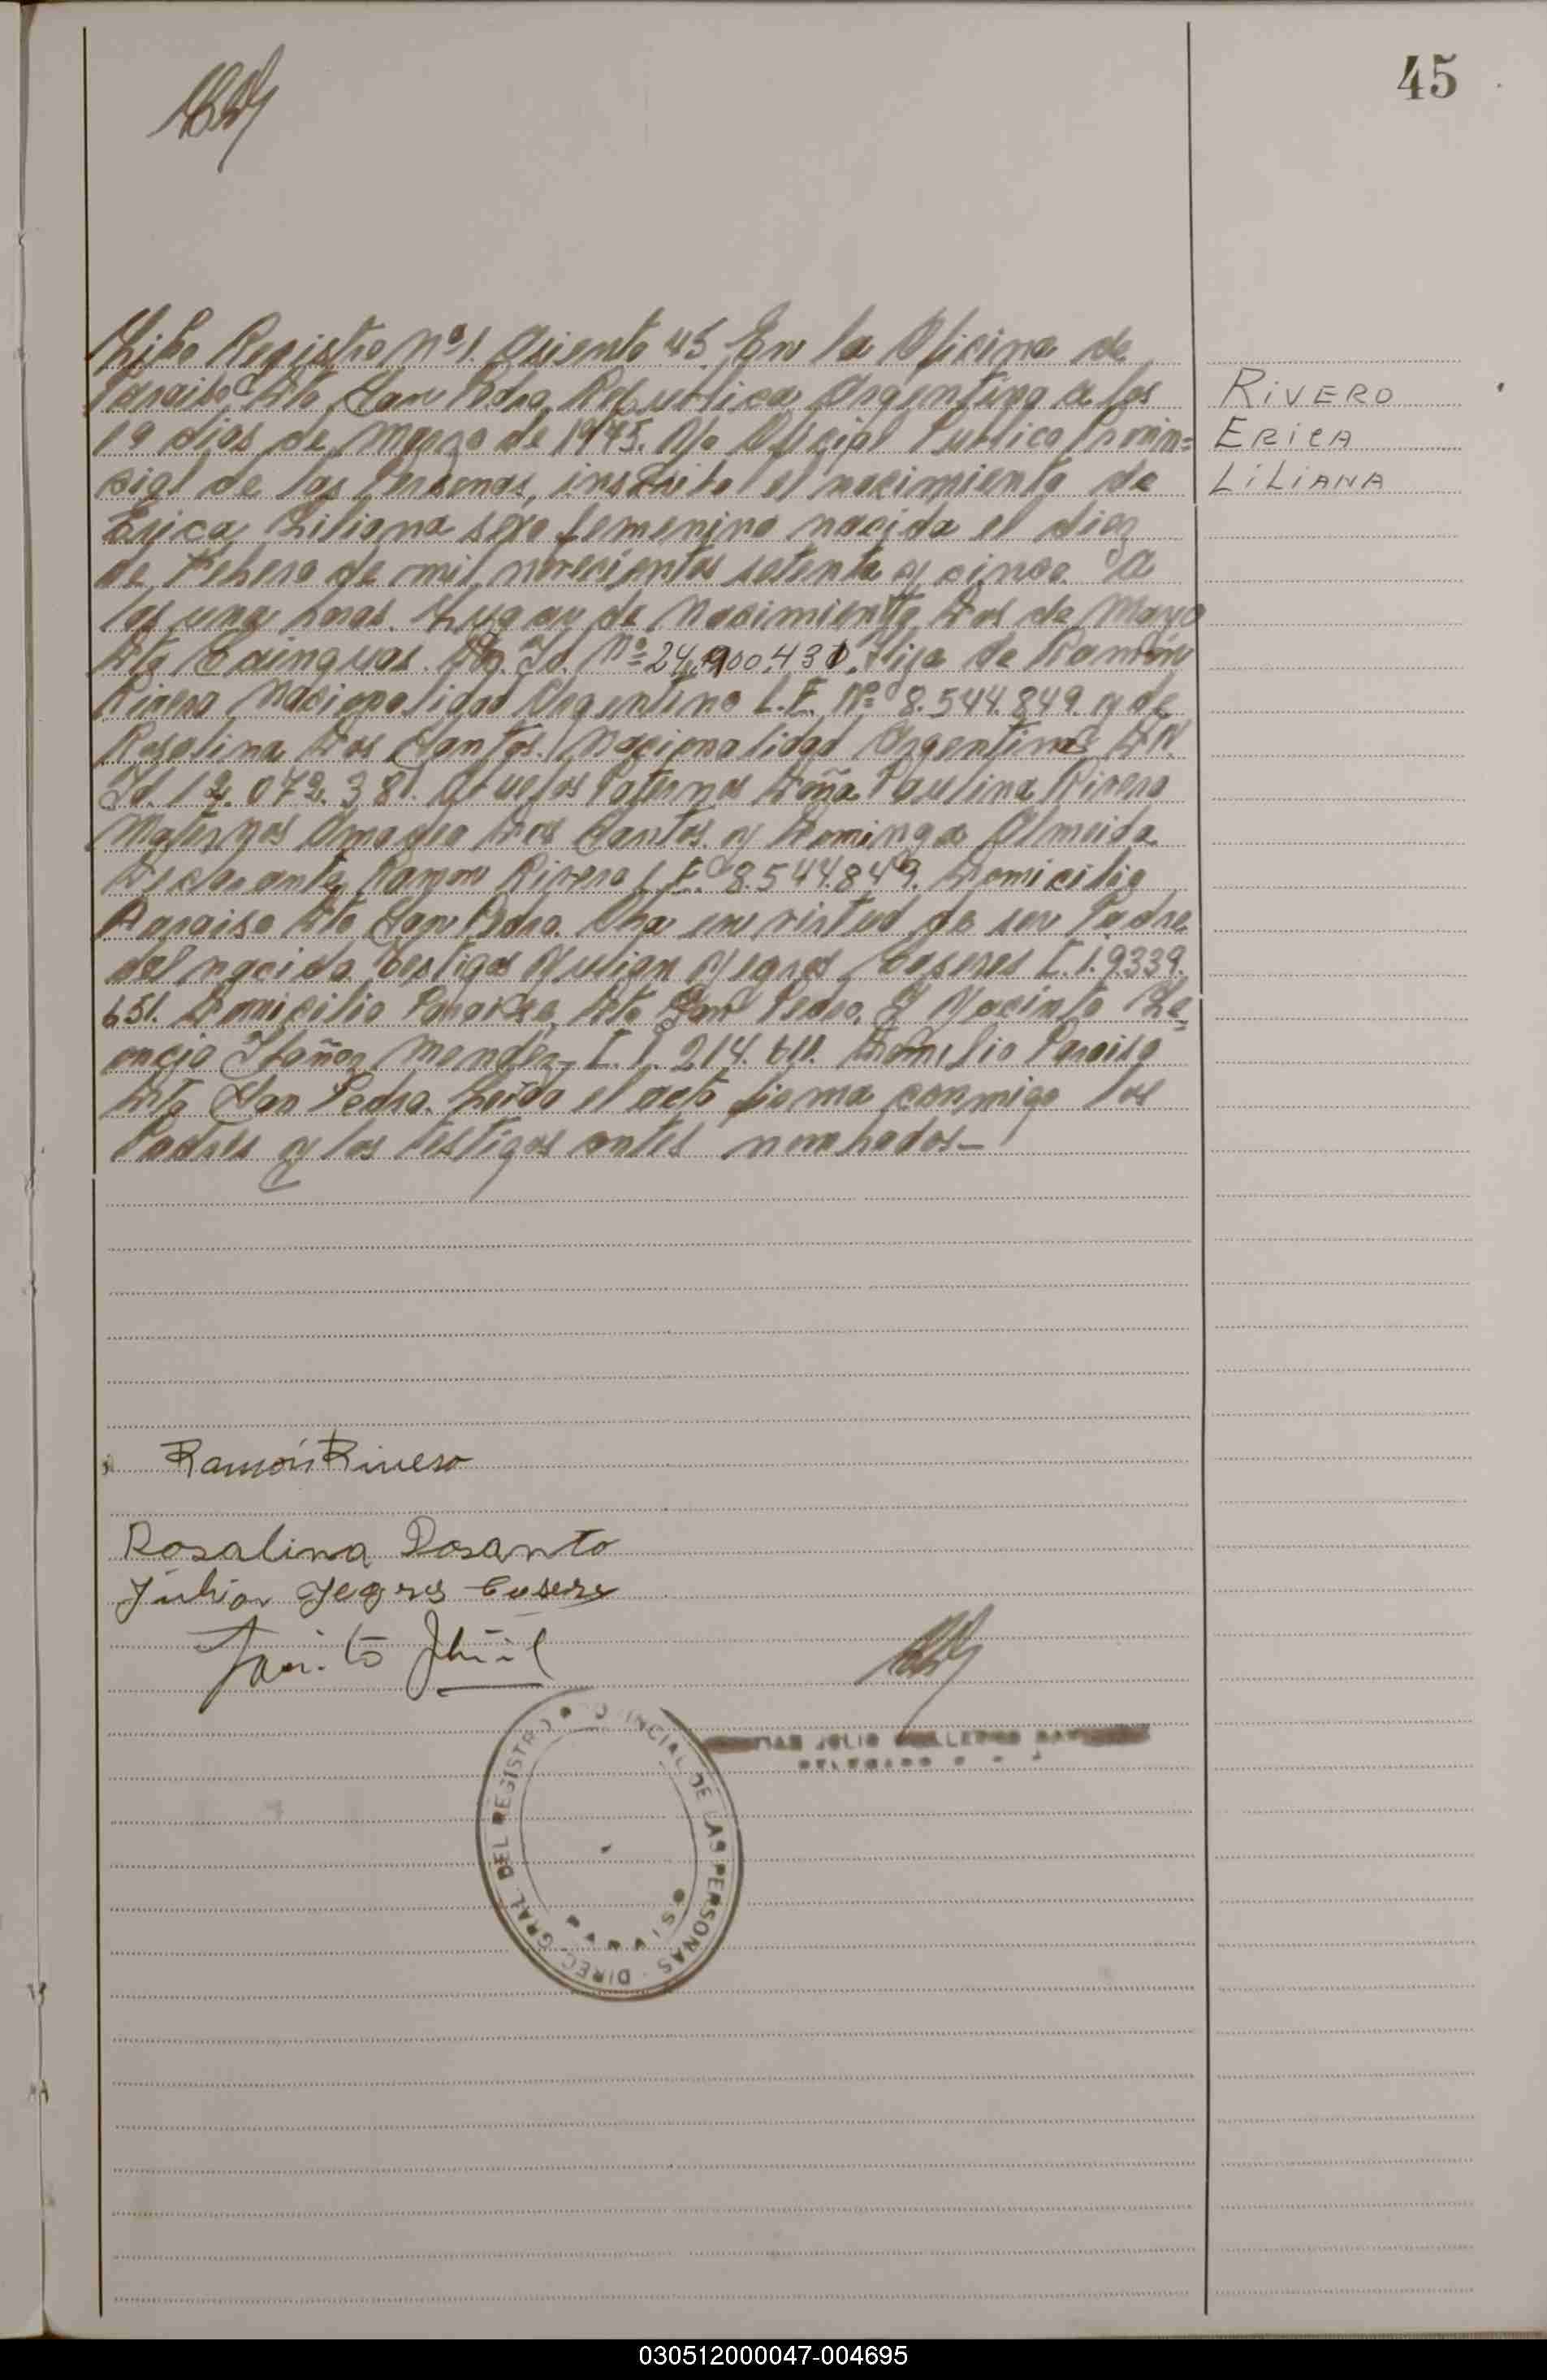 45
Libro Registro Nº 1. Asiento 45 En la Oficina de
Paraiso Dto San Pedro Republica Argentina a los
19 dias de Marzo de 1975. Yo Oficial Publico Provin=
cial de las Personas, inscribo el nacimiento de
Erica Liliana sexo femenino nacida el diez
de Febrero de mil novecientos setenta y cinco a
las una horas. Lugar de Nacimiento Dos de Mayo
Dto Cainguas. Id. Nº 24.900.431. Hija de Ramón
Rivero Nacionalidad Argentino L.E. Nº 8.544.849 y de
Rosalina Dos Santos. Nacionalidad Argentina
Id. 12.072.381. Abuelos Paternos Doña Paulina Rivero
Maternos Amadeo Dos Santos y Dominga Almeida
Declarante, Ramon Rivero L.E. 8.544.849. Domicilio
Paraiso Dto San Pedro. Obra en virtud de ser Padre
del nacido. Testigos Julian Yegros Caseres C.I. 9339.
651. Domicilio Paraiso, Dto San Pedro, Y Jacinto
Mendez C.I. 214.611. Domicilio Paraiso
Dto San Pedro. Leida el acta firma conmigo los
Padres y los testigos antes nombrados-
RIVERO
ERICA
LILIANA
Ramón Rivero
Rosalina Dosanto
Julian Yegros Casere
JULIO
DELEGADO
DIREC. GRAL. DEL REGISTRO PROVINCIAL DE LAS PERSONAS
030512000047-004695